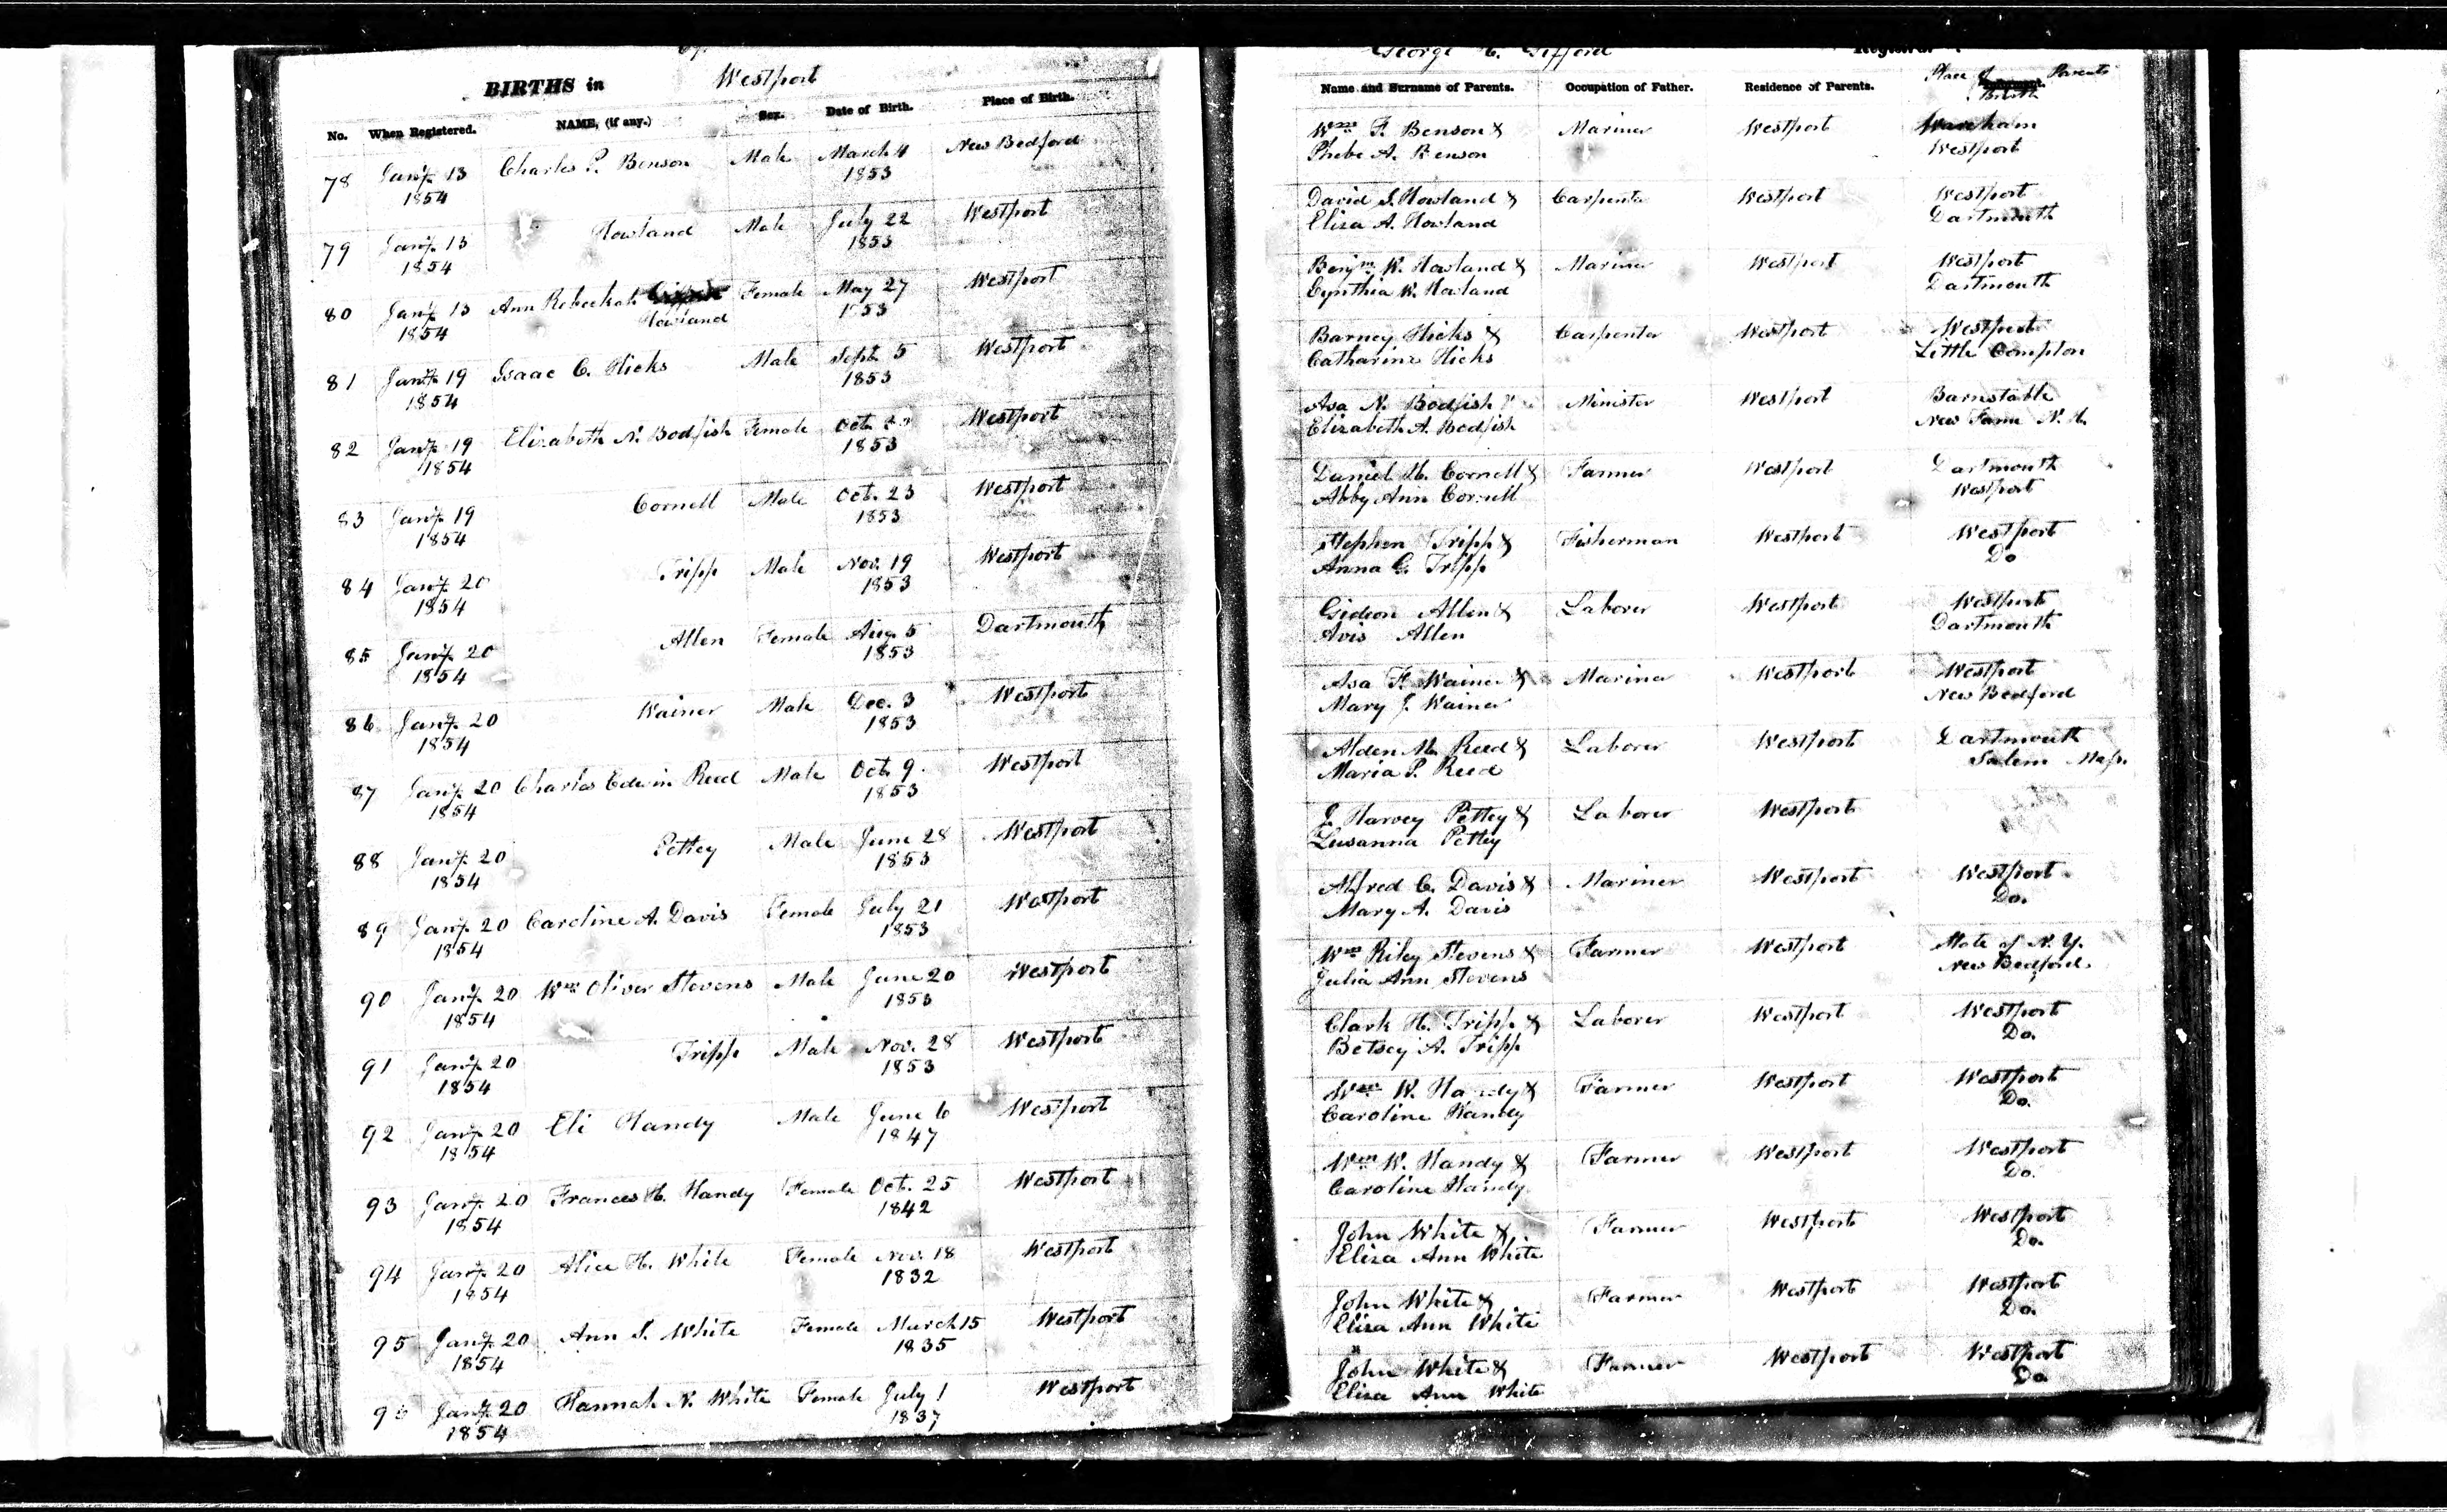 BIRTHS in Westport
No. When Registered. NAME, (if any.) Sex. Date of Birth. Place of Birth.
78 Jany. 13 Charles P. Benson Male March 4 New Bedford
1854 1853
79 Jany. 13 Howland Male July 22 Westport
1854 1853
80 Jany. 13 Ann Rebeckah Female May 27 Westport
1854 Howland 1853
81 Jany. 19 Isaac C. Hicks Male Sept. 5 Westport
1854 1853
82 Jany. 19 Elizabeth N. Bodfish Female Oct. Westport
1854 1853
83 Jany. 19 Cornell Male Oct. 23 Westport
1854 1853
84 Jany. 20 Tripp Male Nov. 19 Westport
1854 1853
85 Jany. 20 Allen Female Aug. 5 Dartmouth
1854 1853
86 Jany. 20 Wainer Male Dec. 3 Westport
1854 1853
87 Jany. 20 Charles Edwin Reed Male Oct. 9. Westport
1854 1853
88 Jany. 20 Pettey Male June 28 Westport
1854 1853
89 Jany. 20 Caroline A. Davis Female July 21 Westport
1854 1853
90 Jany. 20 Wm Oliver Stevens Male June 20 Westport
1854 1853
91 Jany. 20 Tripp Male Nov. 28 Westport
1854 1853
92 Jany. 20 Eli Handy Male June 6 Westport
1854 1847
93 Jany. 20 Frances H. Handy Female Oct. 25 Westport
1854 1842
94 Jany. 20 Alice H. White Female Nov. 18 Westport
1854 1832
95 Jany. 20 Ann S. White Female March 15 Westport
1854 1835
96 Jany. 20 Hannah N. White Female July 1 Westport
1854 1837
George C. Gifford Registrar
Name and Surname of Parents. Occupation of Father. Residence of Parents. Place of Parents
Birth
Wm F. Benson & Mariner Westport Wareham
Phebe A. Benson Westport
David S. Howland & Carpenter Westport Westport
Eliza A. Howland Dartmouth
Benjm. W. Howland & Mariner Westport Westport
Cynthia W. Howland Dartmouth
Barney Hicks & Carpenter Westport Westport
Catharine Hicks Little Compton
Asa N. Bodfish Minister Westport Barnstable
Elizabeth A. Bodfish New N. H.
Daniel M. Cornell & Farmer Westport Dartmouth
Abby Ann Cornell Westport
Stephen Tripp & Fisherman Westport Westport
Anna C. Tripp Do
Gideon Allen & Laborer Westport Westport
Avis Allen Dartmouth
Asa F. Wainer & Mariner Westport Westport
Mary J. Wainer New Bedford
Alden M. Reed & Laborer Westport Dartmouth
Maria P. Reed Salem Mass.
J. Harvey Pettey & Laborer Westport
Lusanna Pettey
Alfred C. Davis & Mariner Westport Westport
Mary A. Davis Do.
Wm Riley Stevens & Farmer Westport State of N. Y.
Julia Ann Stevens New Bedford.
Clark H. Tripp & Laborer Westport Westport
Betsey A. Tripp Do.
Wm W. Handy & Farmer Westport Westport
Caroline Handy Do.
Wm W. Handy & Farmer Westport Westport
Caroline Handy Do.
John White & Farmer Westport Westport
Eliza Ann White Do.
John White & Farmer Westport Westport
Eliza Ann White Do.
John White & Farmer Westport Westport
Eliza Ann White Do